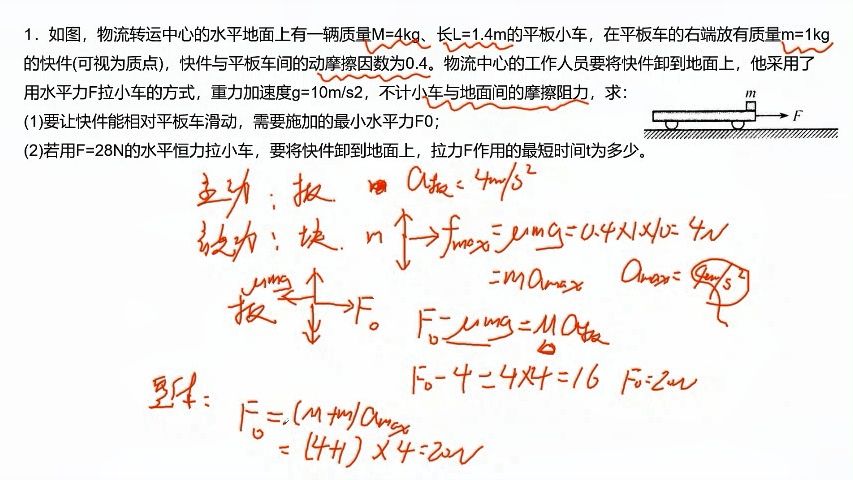 1. 如图，物流转运中心的水平地面上有一辆质量M=4kg、长L=1.4m的平板小车，在平板车的右端放有质量m=1kg
的快件(可视为质点)，快件与平板车间的动摩擦因数为0.4。物流中心的工作人员要将快件卸到地面上，他采用了
用水平力F拉小车的方式，重力加速度g=10m/s2，不计小车与地面间的摩擦阻力，求：
m
F
(1)要让快件能相对平板车滑动，需要施加的最小水平力F0；
(2)若用F=28N的水平恒力拉小车，要将快件卸到地面上，拉力F作用的最短时间t为多少。
主动：板 a板=4m/s²
被动：块 m fmax=μmg=0.4×1×10=4N
=mamax amax=4m/s²
μmg
板 F0
F0-μmg=Ma板
F0-4=4×4=16 F0=20N
整体：
F0=(M+m)amax
=(4+1)×4=20N